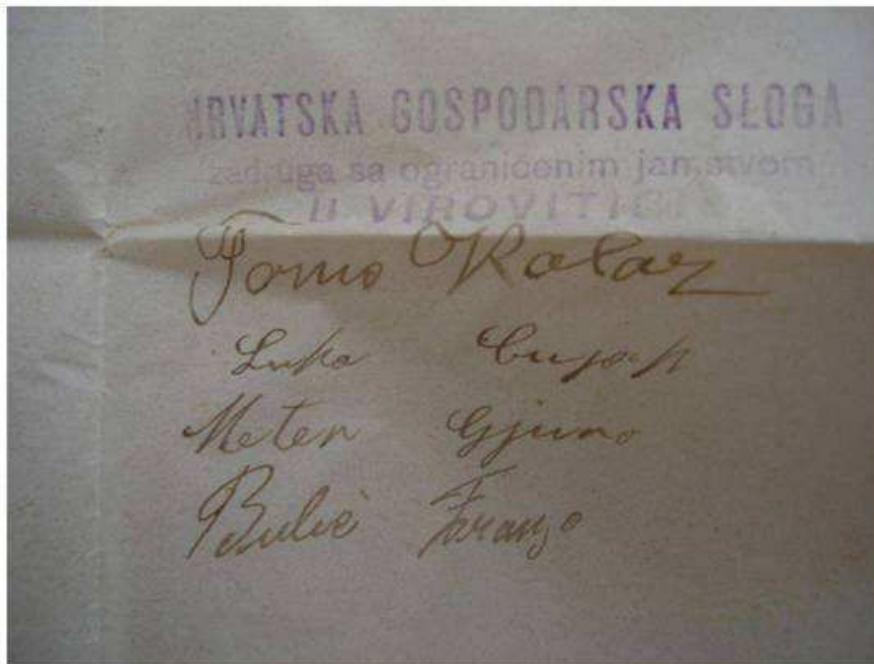 HRVATSKA GOSPODARSKA SLOGA
zadruga sa ograničenim jamstvom
U VIROVITICI
Tomo Kolar
Luka
Meter Gjuro
Bulić Franjo